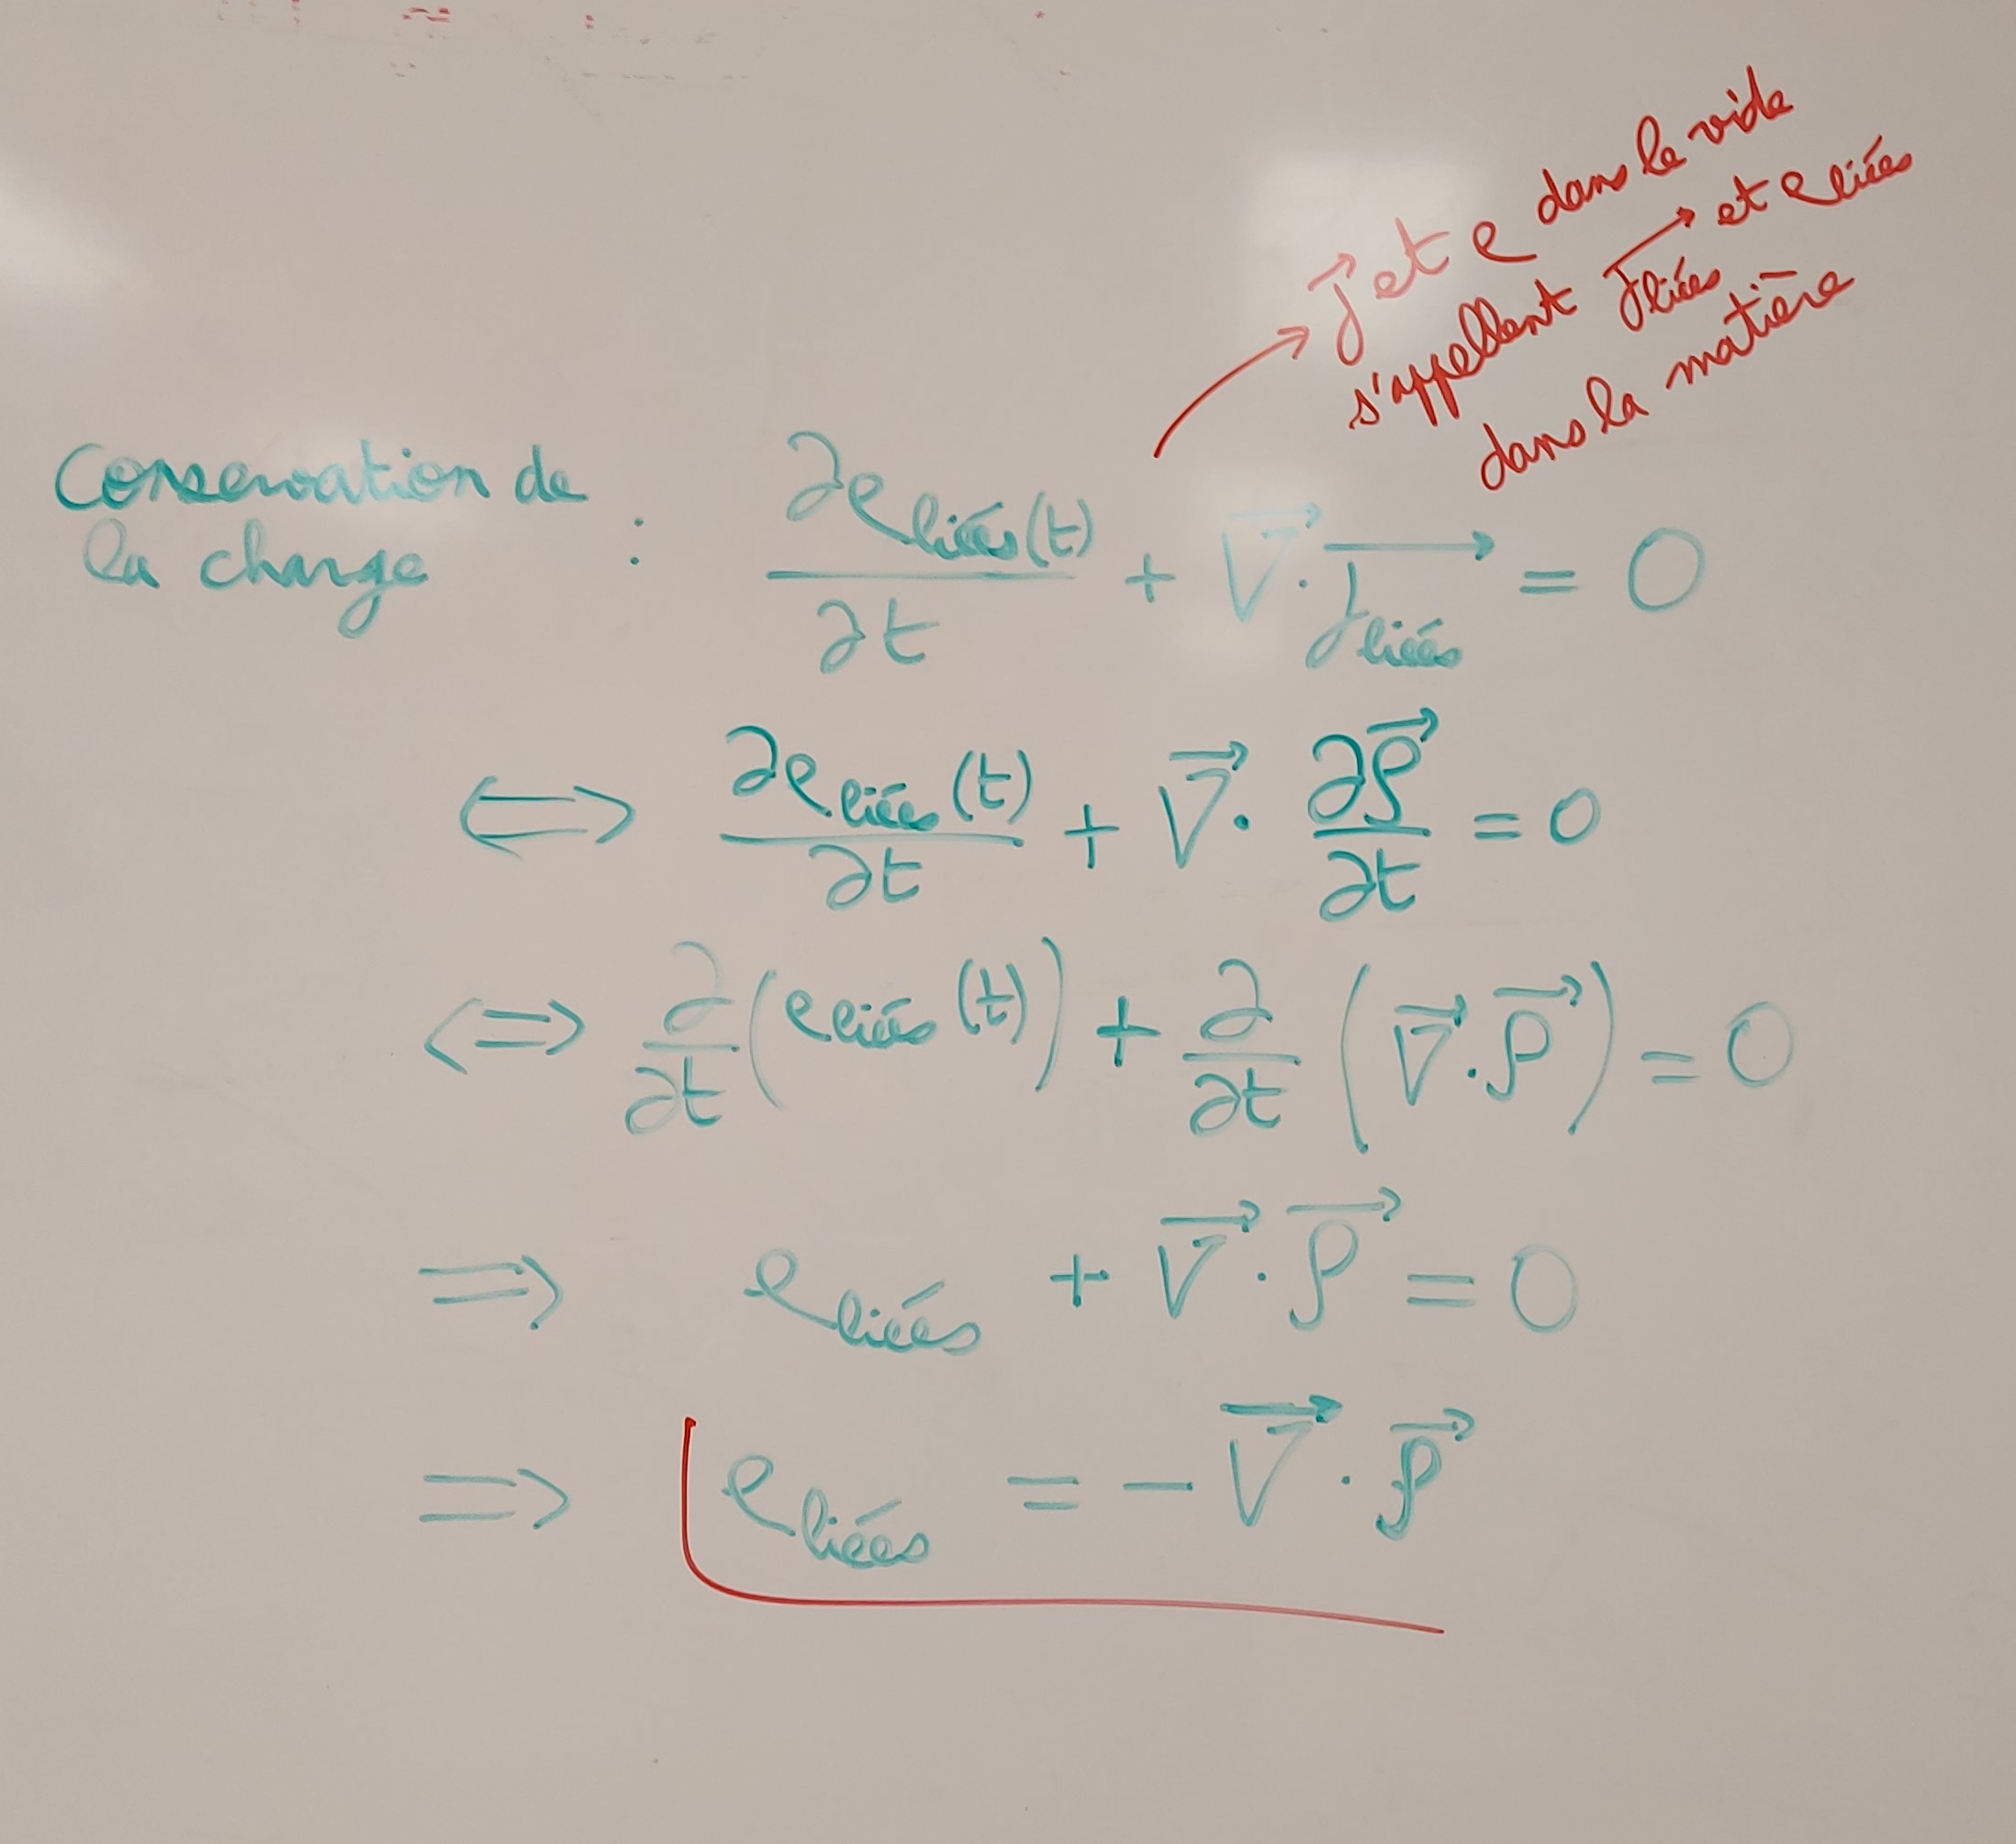 j⃗ et ρ dans le vide
s'appellent j⃗liées et ρliées
dans la matière
Conservation de
la charge : ∂ρliées(t)/∂t + ∇⃗ · j⃗liées = 0
⟺ ∂ρliées(t)/∂t + ∇⃗ · ∂P⃗/∂t = 0
⟺ ∂/∂t (ρliées(t)) + ∂/∂t (∇⃗ · P⃗) = 0
⟹ ρliées + ∇⃗ · P⃗ = 0
⟹ ρliées = − ∇⃗ · P⃗